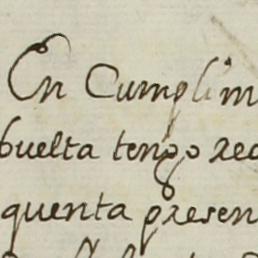 En Cumplim
buelta tengo rec
quenta presen